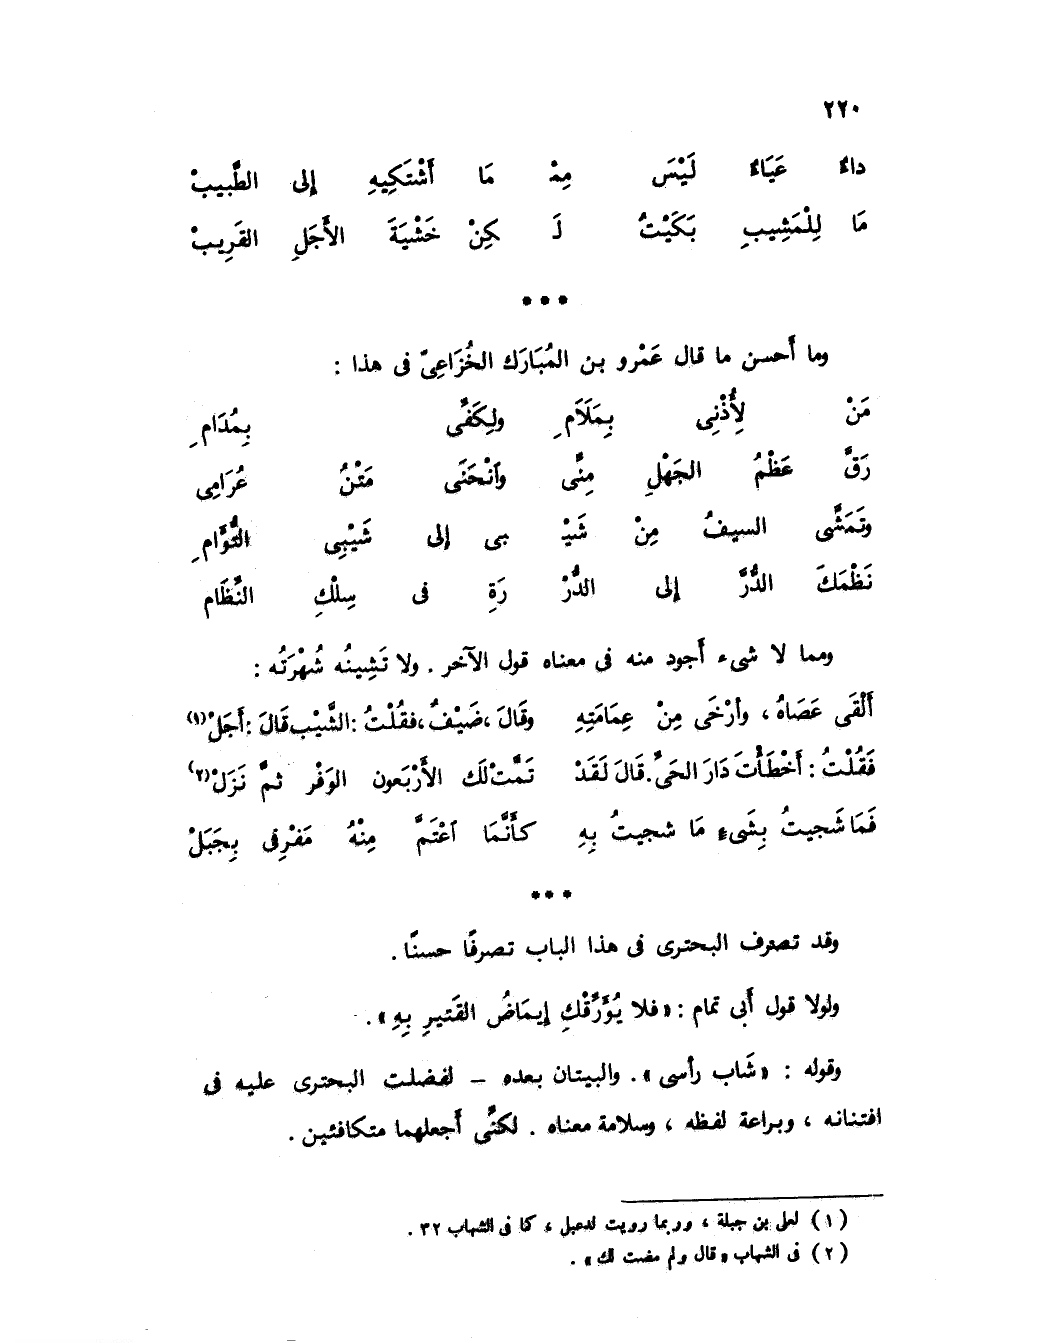 ٢٢٠
داءٌ عَيَاءٌ لَيْسَ مِنْهُ مَا أَشْتَكِيهِ إلى الطَّبيبْ
مَا لِلْمَشِيبِ بَكَيْتُ لَـكِنْ خَشْيَةَ الأَجَلِ القَرِيبْ
•••
وما أَحسن ما قال عَمْرو بن المُبَارَك الخُزَاعِىّ فى هذا :
مَنْ لِأُذْنِى بِمَلَامِ ولِكَفِّى بِمُدَامِ
رَقَّ عَظْمُ الجَهْلِ مِنِّى وآنْحَنَى مَتْنُ عُرَامِى
وتَمَشَّى السيفُ مِنْ شَيْبِى إلى شَيْبِى التُّؤَامِ
نَظْمَكَ الدُّرَّ إلى الدُّرَّةِ فى سِلْكِ النِّظَام
ومما لا شىء أَجود منه فى معناه قول الآخر . ولا تَشِينُه شُهْرَتُه :
أَلْقَى عَصَاهُ ، وأرْخَى مِنْ عِمَامَتِهِ وقَالَ ،ضَيْفٌ ،فقُلْتُ :الشَّيْب قَالَ :أَجَلْ(١)
فَقُلْتُ : أَخْطَأْتَ دَارَ الحَىِّ. قَالَ لَقَدْ تَمَّتْ لَك الأَرْبَعون الوَفْر ثمَّ نَزَلْ(٢)
فَمَا شَجيتُ بِشَىءٍ مَا شجيتُ بِهِ كأَنَّمَا آعْتَمَّ مِنْهُ مَفْرِقى بِجَبَلْ
•••
وقد تصرف البحترى فى هذا الباب تصرفًا حسنًا .
ولولا قول أَبى تمام : «فلا يُؤَرِّقْكِ إيمَاضُ القَتيرِ بِهِ» .
وقوله : «شَاب رأسى» . والبيتان بعده – لفضلت البحترى عليه فى
افتنانه ، وبراعة لفظه ، وسلامة معناه . لكنِّى أَجعلهما متكافئين .
(١) لعلى بن جبلة ، وربما رويت لدعبل ، كما فى الشهاب ٣٢ .
(٢) فى الشهاب «قال ولم مضت لك» .